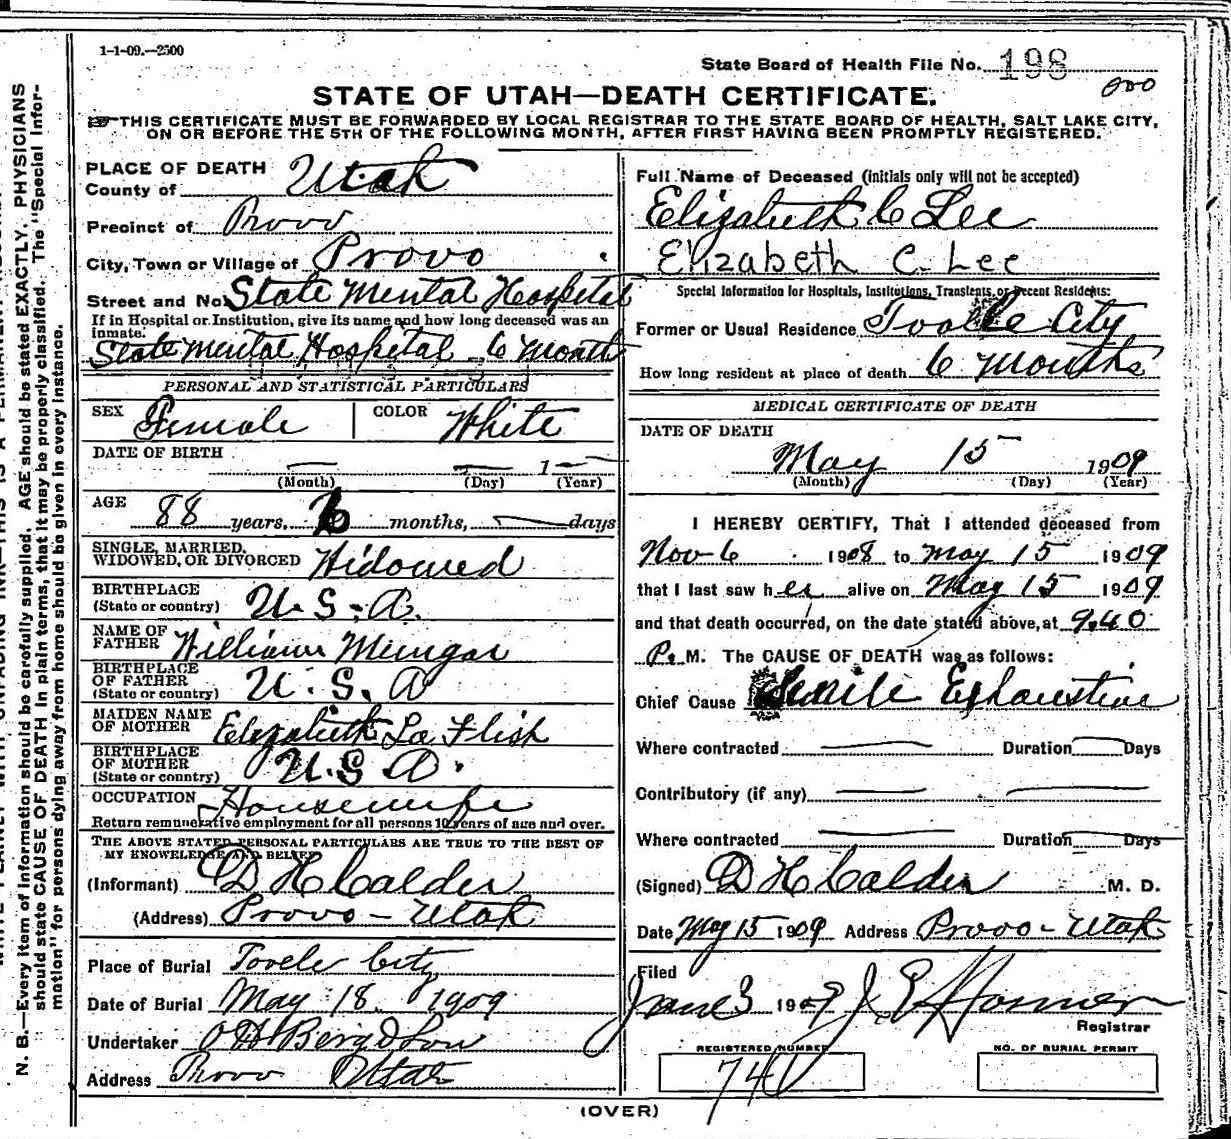 1-1-09.—2500
State Board of Health File No. 198
000
STATE OF UTAH—DEATH CERTIFICATE.
THIS CERTIFICATE MUST BE FORWARDED BY LOCAL REGISTRAR TO THE STATE BOARD OF HEALTH, SALT LAKE CITY,
ON OR BEFORE THE 5TH OF THE FOLLOWING MONTH, AFTER FIRST HAVING BEEN PROMPTLY REGISTERED.
PLACE OF DEATH
County of Utah
Precinct of Provo
City, Town or Village of Provo
Street and No. State Mental Hospital
If in Hospital or Institution, give its name and how long deceased was an
inmate.
State Mental Hospital 6 Month
PERSONAL AND STATISTICAL PARTICULARS
SEX Female COLOR White
DATE OF BIRTH — — 1—
(Month) (Day) (Year)
AGE 88 years, months, — days
SINGLE, MARRIED,
WIDOWED, OR DIVORCED Widowed
BIRTHPLACE
(State or country) U. S. A.
NAME OF
FATHER William Mungar
BIRTHPLACE
OF FATHER
(State or country) U. S. A
MAIDEN NAME
OF MOTHER Elizabeth La Flish
BIRTHPLACE
OF MOTHER
(State or country) U. S. A.
OCCUPATION Housewife
Return remunerative employment for all persons 10 years of age and over.
THE ABOVE STATED PERSONAL PARTICULARS ARE TRUE TO THE BEST OF
MY KNOWELEDSE AND BELIEF
(Informant) D H Calder
(Address) Provo - Utah
Place of Burial Tooele City
Date of Burial May 18 1909
Undertaker O H Berg & Son
Address Provo Utah
Full Name of Deceased (initials only will not be accepted)
Elizabeth C Lee
Elizabeth C. Lee
Special Information for Hospitals, Institutions, Transients, or Recent Residents:
Former or Usual Residence Tooele City
How long resident at place of death 6 Months
MEDICAL CERTIFICATE OF DEATH
DATE OF DEATH
May 15 1909
(Month) (Day) (Year)
I HEREBY CERTIFY, That I attended deceased from
Nov 6 1908 to May 15 1909
that I last saw her alive on May 15 1909
and that death occurred, on the date stated above, at 9.40
P. M. The CAUSE OF DEATH was as follows:
Chief Cause Senile Exhaustion
Where contracted — Duration — Days
Contributory (if any) — —
Where contracted — Duration — Days
(Signed) D H Calder M. D.
Date May 15 1909 Address Provo - Utah
Filed
June 3 1909 J. E. Homer
Registrar
REGISTERED NUMBER
NO. OF BURIAL PERMIT
(OVER)
N. B.—Every item of information should be carefully supplied. AGE should be stated EXACTLY. PHYSICIANS
should state CAUSE OF DEATH in plain terms, that it may be properly classified. The "Special Infor-
mation" for persons dying away from home should be given in every instance.